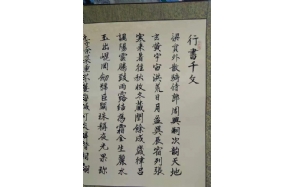 行書千文
梁員外散騎侍郎周興嗣次韵天地
玄黃宇宙洪荒日月盈昃辰宿列張
寒来暑往秋收冬藏閏餘成歲律呂
調陽雲騰致雨露結為霜金生麗水
玉出崐岡劒號巨闕珠稱夜光果珍